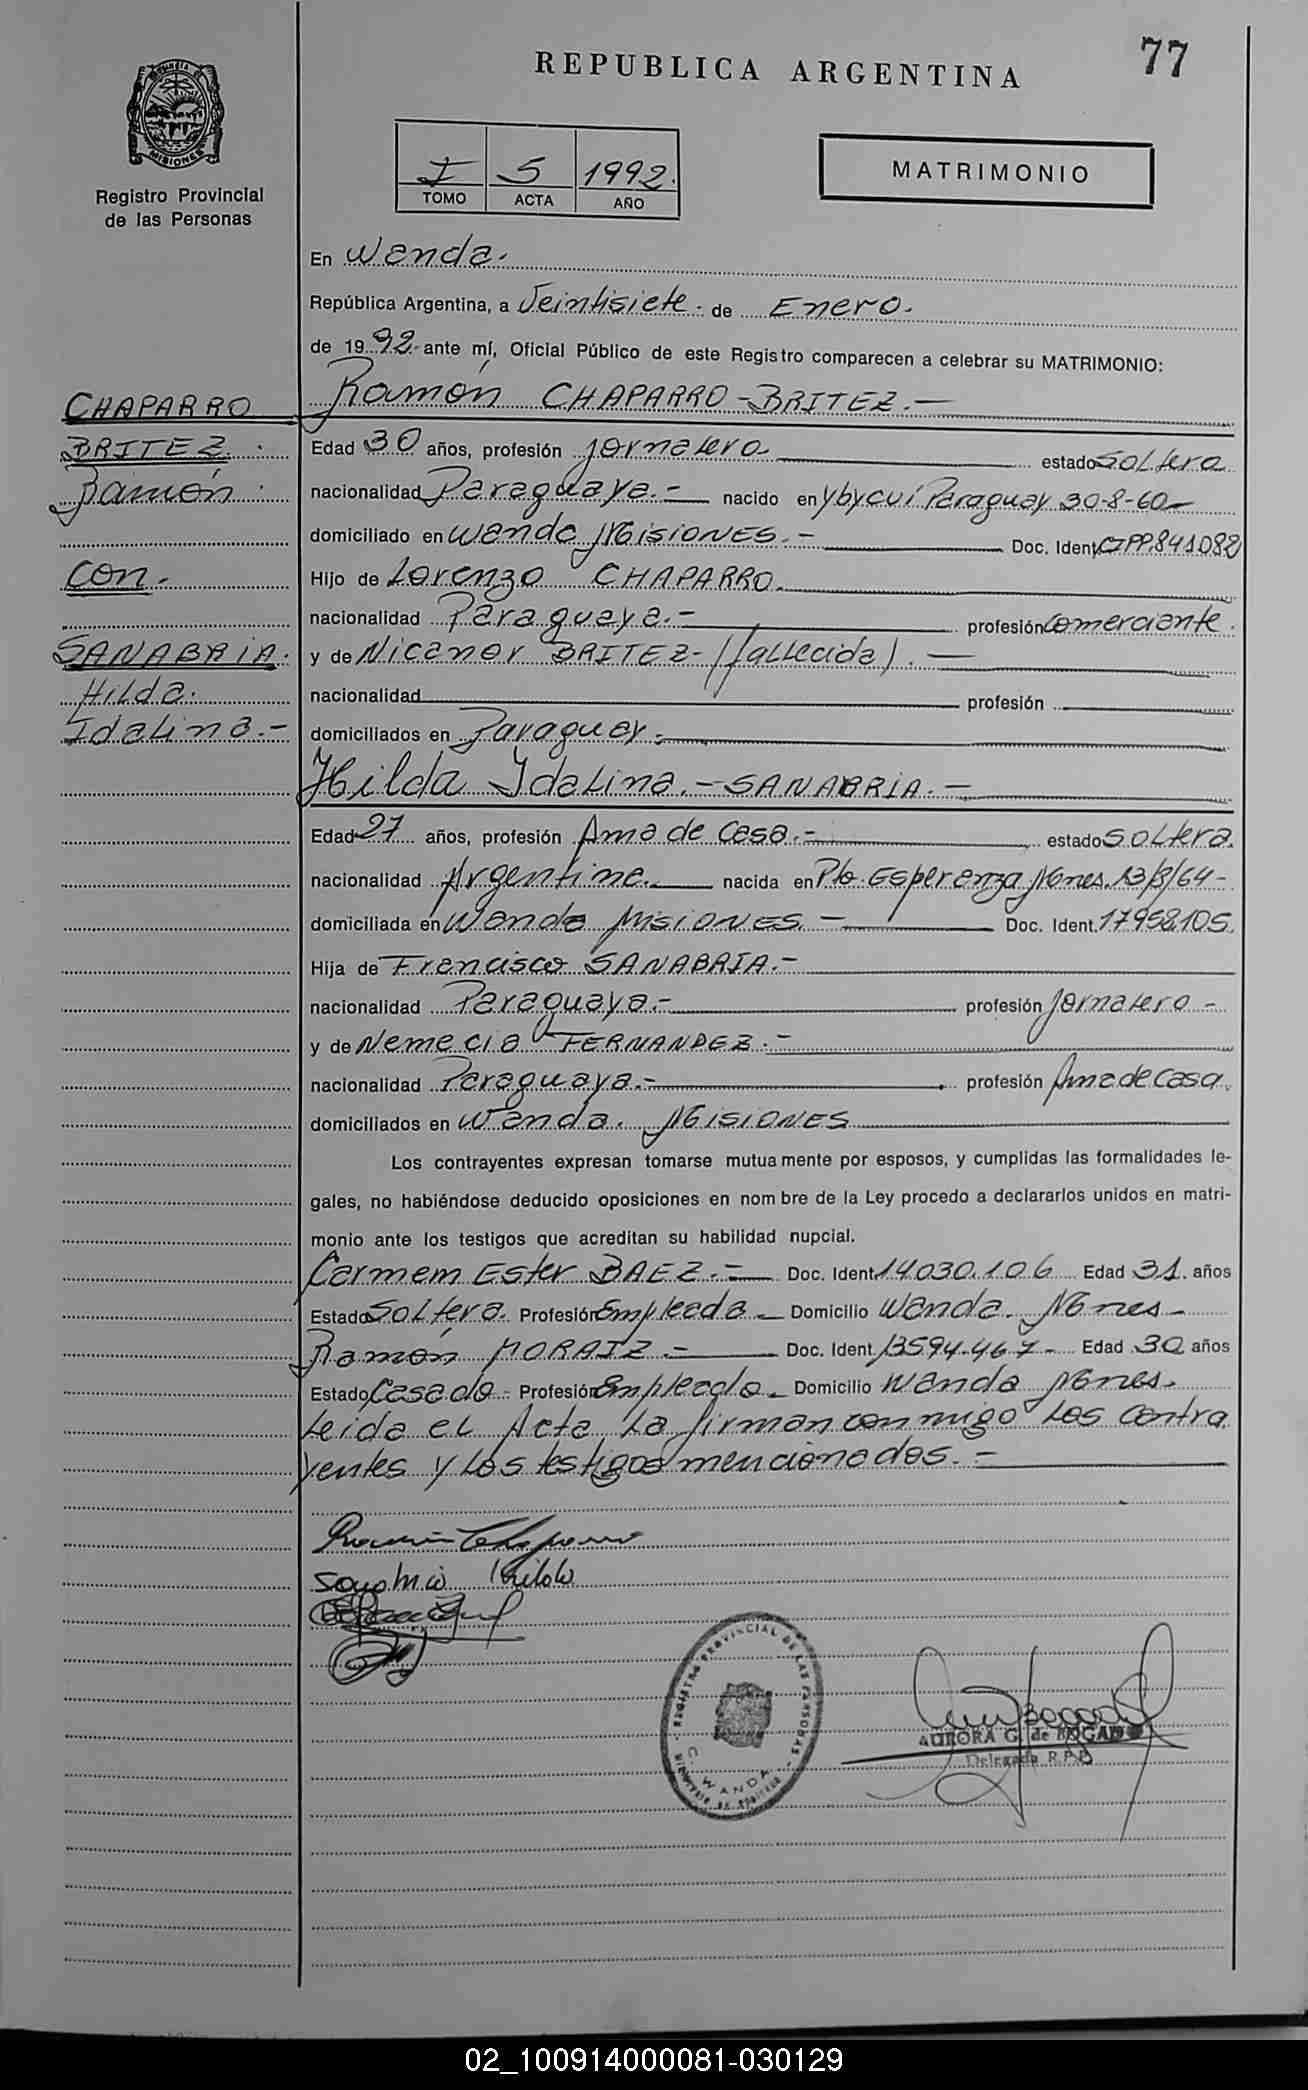 77
REPUBLICA ARGENTINA
PROVINCIA DE MISIONES
Registro Provincial
de las Personas
I 5 1992.
TOMO ACTA AÑO
MATRIMONIO
En Wanda.
República Argentina, a Veintisiete. de Enero.
de 1992 ante mí, Oficial Público de este Registro comparecen a celebrar su MATRIMONIO:
CHAPARRO
BRITEZ.
Ramón
con.
SANABRIA.
Hilda.
Idalina.-
Ramón CHAPARRO-BRITEZ.-
Edad 30 años, profesión Jornalero. estado Soltero
nacionalidad Paraguaya.- nacido en Ybycuí Paraguay 30-8-60-
domiciliado en Wanda Misiones.- Doc. Ident. 841.082
Hijo de Lorenzo CHAPARRO.
nacionalidad Paraguaya.- profesión Comerciante.
y de Nicanor BRITEZ-(fallecida).-
nacionalidad profesión
domiciliados en Paraguay.
Hilda Idalina.-SANABRIA.-
Edad 27 años, profesión Ama de Casa.- estado Soltera.
nacionalidad Argentina. nacida en Pto. Esperanza Mnes. 13/8/64-
domiciliada en Wanda Misiones.- Doc. Ident. 17.958.105.
Hija de Francisco SANABRIA.-
nacionalidad Paraguaya.- profesión Jornalero-
y de Nemecia FERNANDEZ.-
nacionalidad Paraguaya.- profesión Ama de Casa.
domiciliados en Wanda. Misiones
Los contrayentes expresan tomarse mutuamente por esposos, y cumplidas las formalidades le-
gales, no habiéndose deducido oposiciones en nombre de la Ley procedo a declararlos unidos en matri-
monio ante los testigos que acreditan su habilidad nupcial.
Carmem Ester BAEZ.- Doc. Ident. 14.030.106 Edad 31. años
Estado Soltera. Profesión Empleada- Domicilio Wanda. Mnes-
Ramón MORAIZ.- Doc. Ident. 13.594.467- Edad 30 años
Estado Casado- Profesión Empleado- Domicilio Wanda Mnes.
Leida el Acta la firman conmigo los contra
yentes y los testigos mencionados.-
Ramón Chaparro
Sanabria Hilda
REGISTRO PROVINCIAL DE LAS PERSONAS
WANDA
AURORA G. de BOGADO
Delegada R.P.P.
02_100914000081-030129